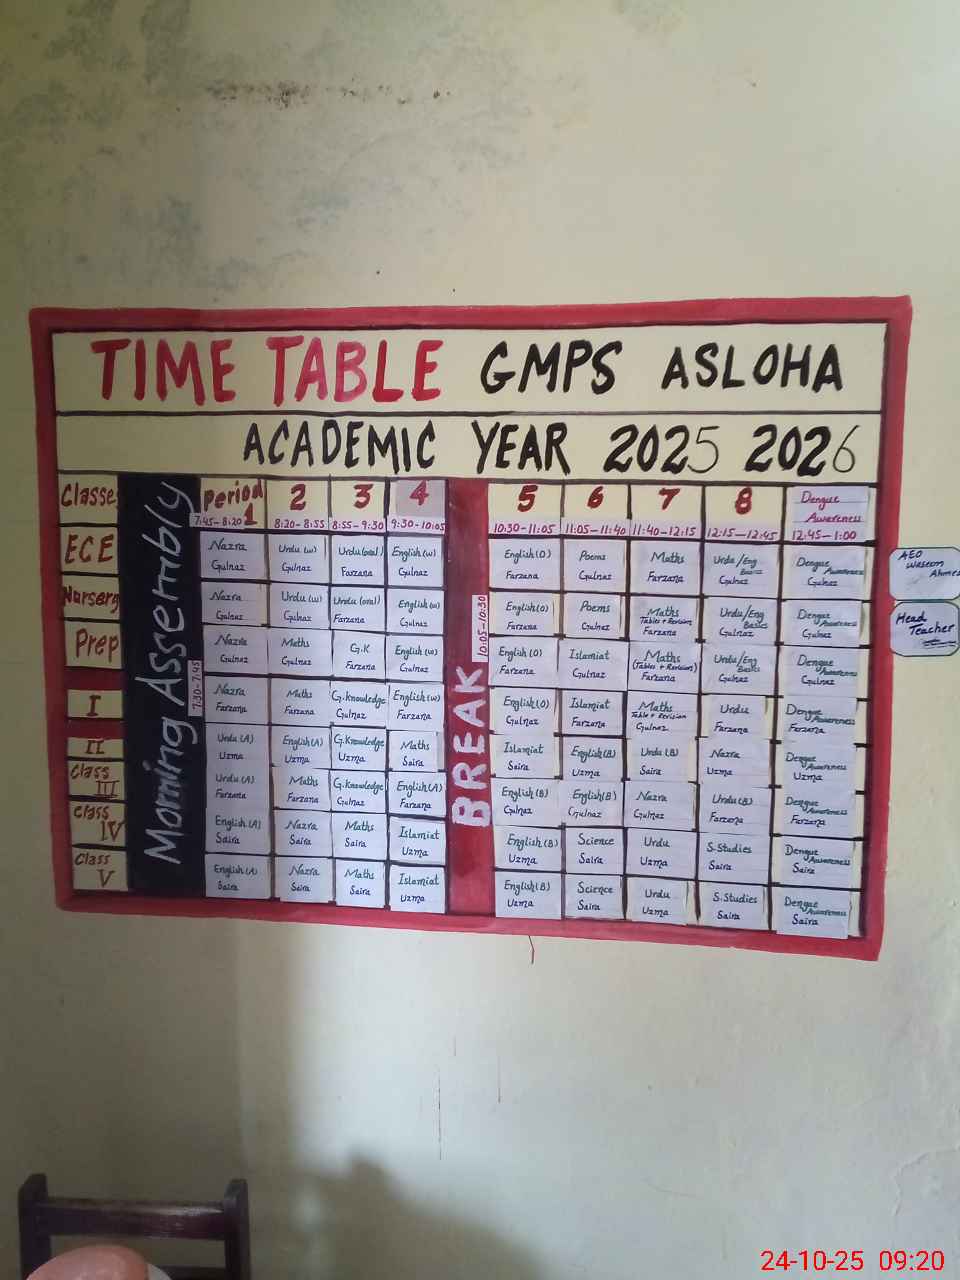 TIME TABLE GMPS ASLOHA
ACADEMIC YEAR 2025 2026
Classes
Morning Assembly
7:30-7:45
Period 1
7:45-8:20
2
8:20-8:55
3
8:55-9:30
4
9:30-10:05
BREAK
10:05-10:30
5
10:30-11:05
6
11:05-11:40
7
11:40-12:15
8
12:15-12:45
Dengue
Awareness
12:45-1:00
ECE
Nazra
Gulnaz
Urdu (w)
Gulnaz
Urdu (oral)
Farzana
English (w)
Gulnaz
English (O)
Farzana
Poems
Gulnaz
Maths
Farzana
Urdu/Eng
Basics
Gulnaz
Dengue
Awareness
Gulnaz
Nursery
Nazra
Gulnaz
Urdu (w)
Gulnaz
Urdu (oral)
Farzana
English (w)
Gulnaz
English (O)
Farzana
Poems
Gulnaz
Maths
Tables + Revision
Farzana
Urdu/Eng
Basics
Gulnaz
Dengue
Awareness
Gulnaz
Prep
Nazra
Gulnaz
Maths
Gulnaz
G.K
Farzana
English (w)
Gulnaz
English (O)
Farzana
Islamiat
Gulnaz
Maths
(Tables + Revision)
Farzana
Urdu/Eng
Basics
Gulnaz
Dengue
Awareness
Gulnaz
I
Nazra
Farzana
Maths
Farzana
G.Knowledge
Gulnaz
English (w)
Farzana
English (O)
Gulnaz
Islamiat
Farzana
Maths
Table + Revision
Gulnaz
Urdu
Farzana
Dengue
Awareness
Farzana
II
Urdu (A)
Uzma
English (A)
Uzma
G.Knowledge
Uzma
Maths
Saira
Islamiat
Saira
English (B)
Uzma
Urdu (B)
Saira
Nazra
Uzma
Dengue
Awareness
Uzma
Class
III
Urdu (A)
Farzana
Maths
Farzana
G.Knowledge
Gulnaz
English (A)
Farzana
English (B)
Gulnaz
English (B)
Gulnaz
Nazra
Gulnaz
Urdu (B)
Farzana
Dengue
Awareness
Farzana
Class
IV
English (A)
Saira
Nazra
Saira
Maths
Saira
Islamiat
Uzma
English (B)
Uzma
Science
Saira
Urdu
Uzma
S.Studies
Saira
Dengue
Awareness
Saira
Class
V
English (A)
Saira
Nazra
Saira
Maths
Saira
Islamiat
Uzma
English (B)
Uzma
Science
Saira
Urdu
Uzma
S.Studies
Saira
Dengue
Awareness
Saira
AEO
Waseem
Ahmed
Head
Teacher
24-10-25 09:20